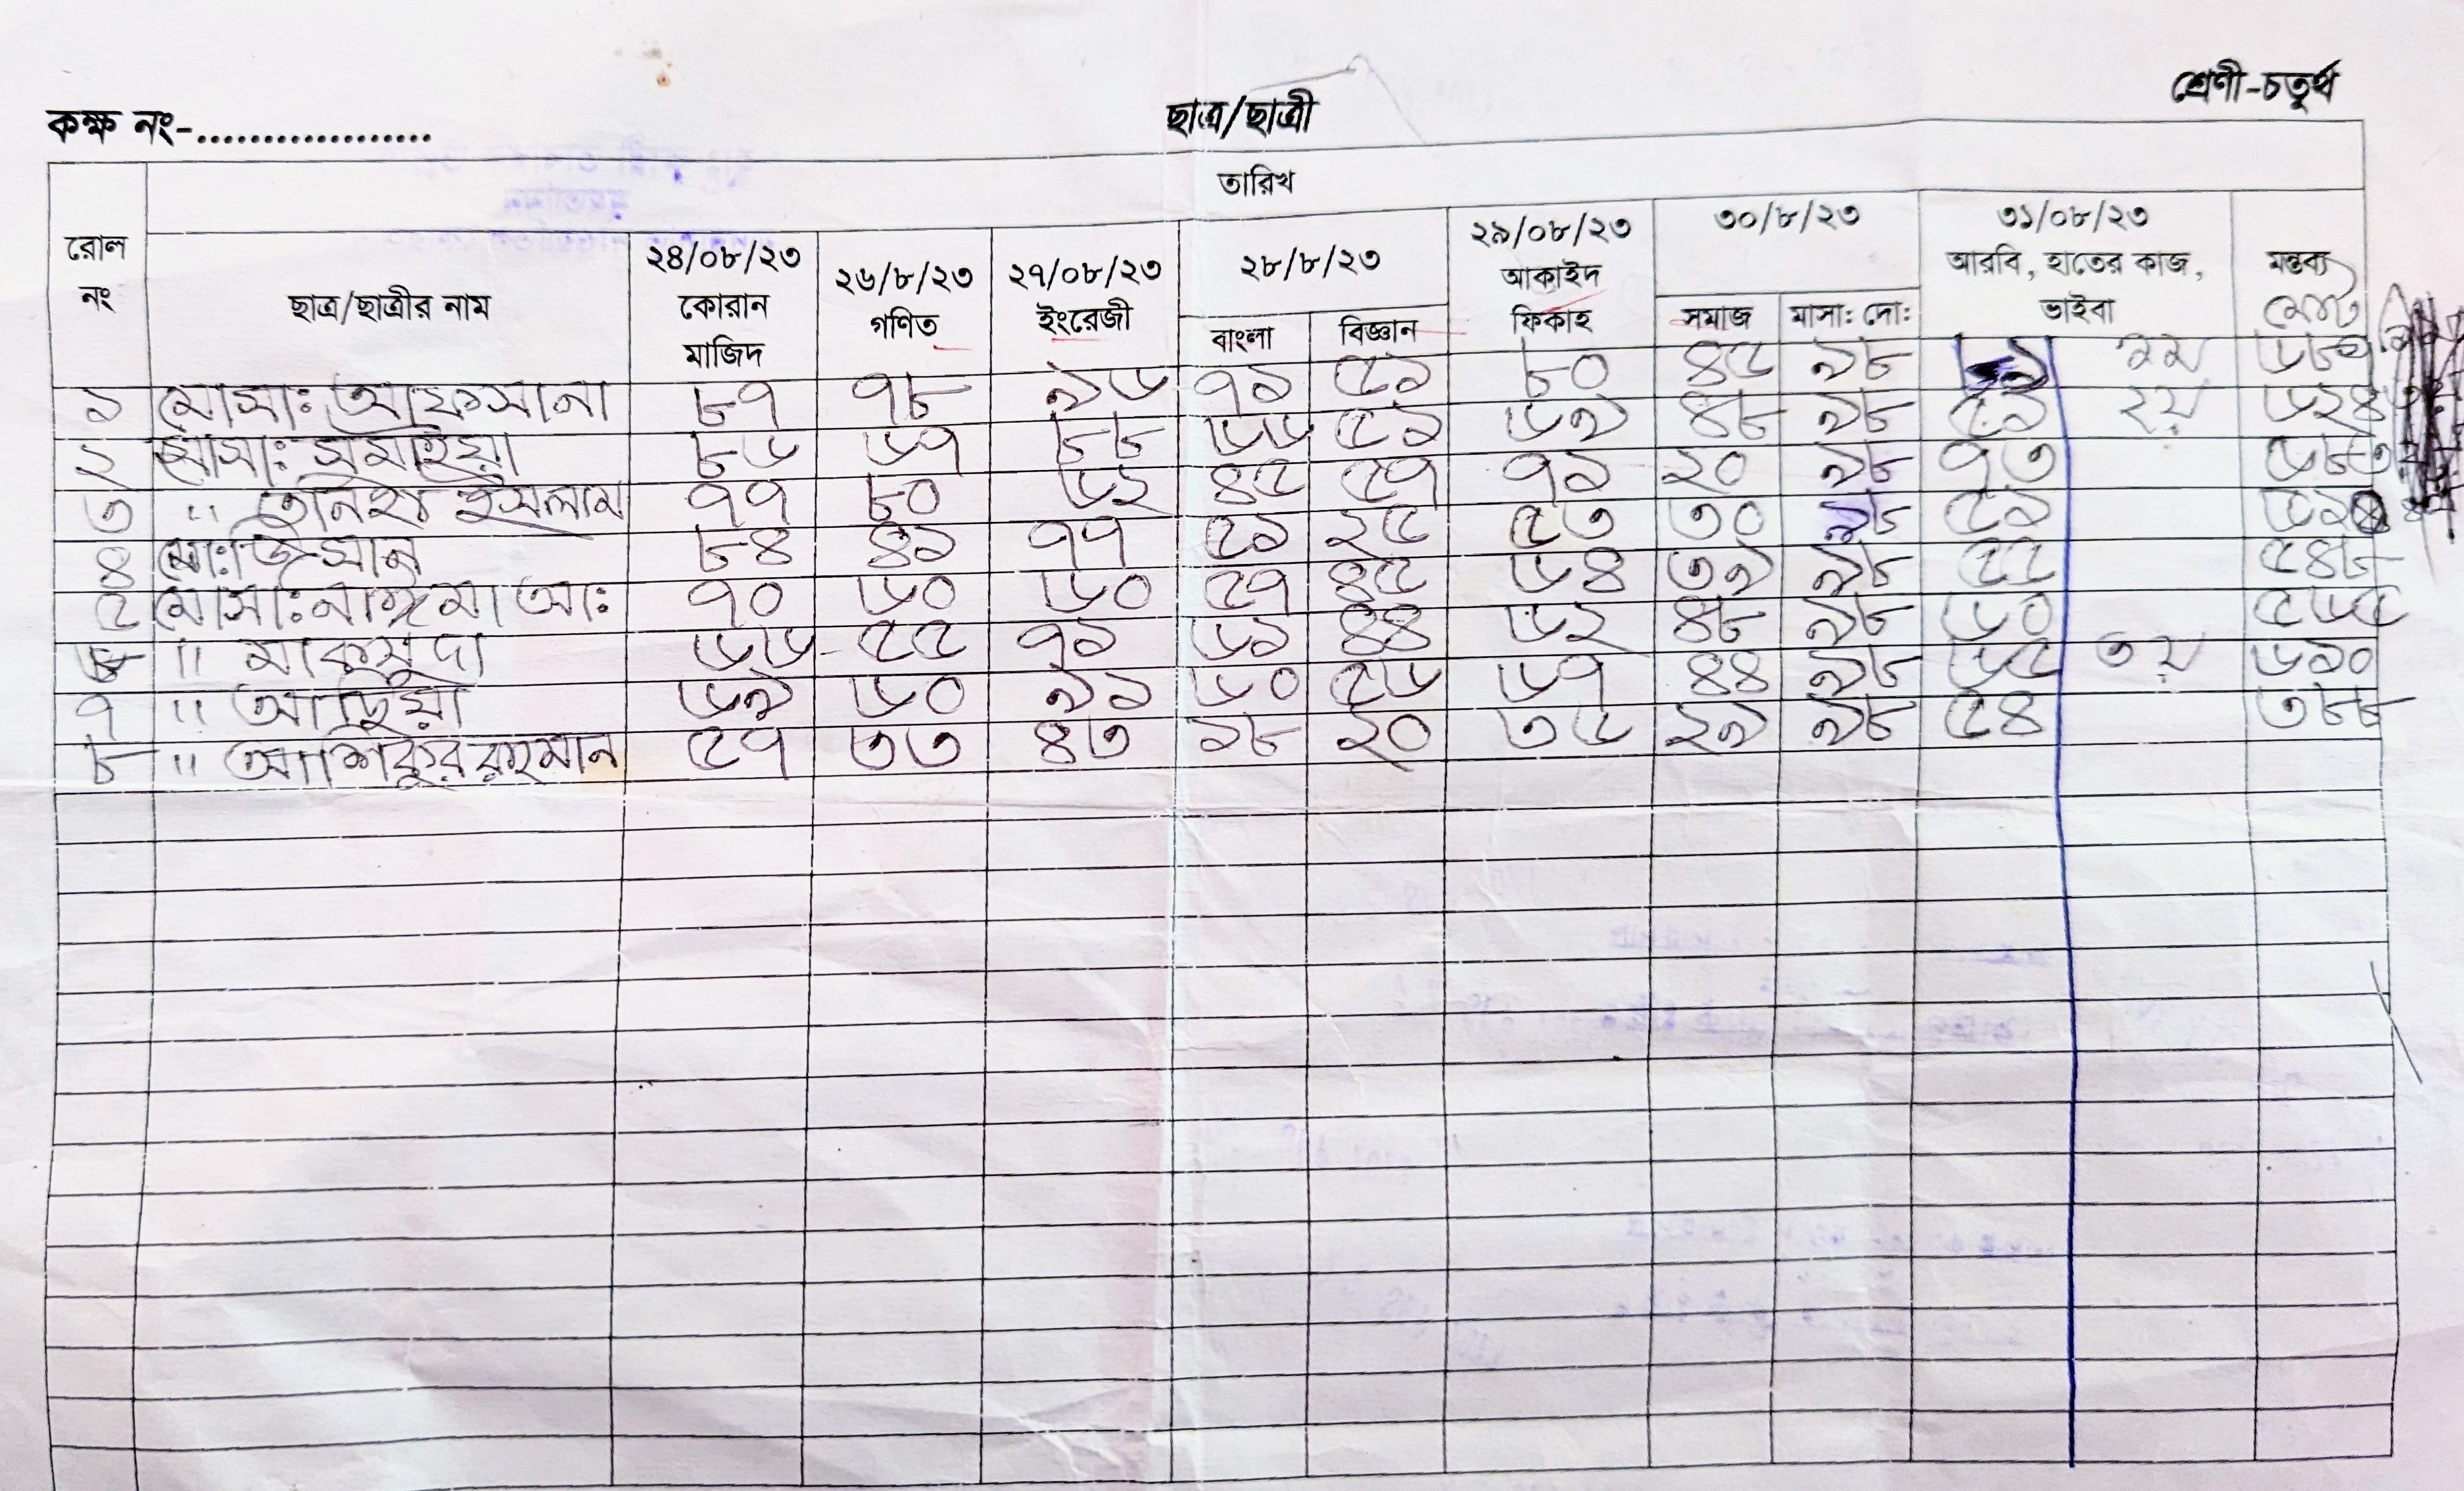 কক্ষ নং-.................. ছাত্র/ছাত্রী শ্রেণী-চতুর্থ
তারিখ
রোল নং ছাত্র/ছাত্রীর নাম ২৪/০৮/২৩ কোরান মাজিদ ২৬/৮/২৩ গণিত ২৭/০৮/২৩ ইংরেজী ২৮/৮/২৩ বাংলা বিজ্ঞান ২৯/০৮/২৩ আকাইদ ফিকাহ ৩০/৮/২৩ সমাজ মাসা: দো: ৩১/০৮/২৩ আরবি, হাতের কাজ, ভাইবা মন্তব্য মোট
১ মোসাঃ আফসানা ৮৭ ৭৮ ৯৬ ৭১ ৫১ ৮০ ৪৫ ৯৮ ১ম
২ মোসা: সুমাইয়া ৮৬ ৬৭ ৮৮ ৬৬ ৫১ ৬৯ ৪৮ ৯৮ ৫১ ২য় ৬২৪
৩ " ইসলাম ৭৭ ৮০ ৬২ ৪৫ ৫৭ ৭১ ২০ ৯৮ ৭৩ ৫৮৩
৪ মো: ৮৪ ৪১ ৭৭ ৫১ ২৫ ৫৩ ৩০ ৯৮ ৫১
৫ মোসা: নাঈমা আঃ ৭০ ৬০ ৬০ ৫৭ ৪৫ ৬৪ ৩৯ ৯৮ ৫৫ ৫৪৮
৬ " মাকসুদা ৬৬ ৫৫ ৭১ ৬১ ৪৪ ৬২ ৪৮ ৯৮ ৬০ ৫৬৫
৭ " ৬৯ ৬০ ৯১ ৬০ ৫৬ ৬৭ ৪৪ ৯৮ ৬৫ ৩য় ৬১০
৮ " আশিকুর রহমান ৫৭ ৩৩ ৪৩ ১৮ ২০ ৩৫ ২৯ ৯৮ ৫৪ ৩৮৮